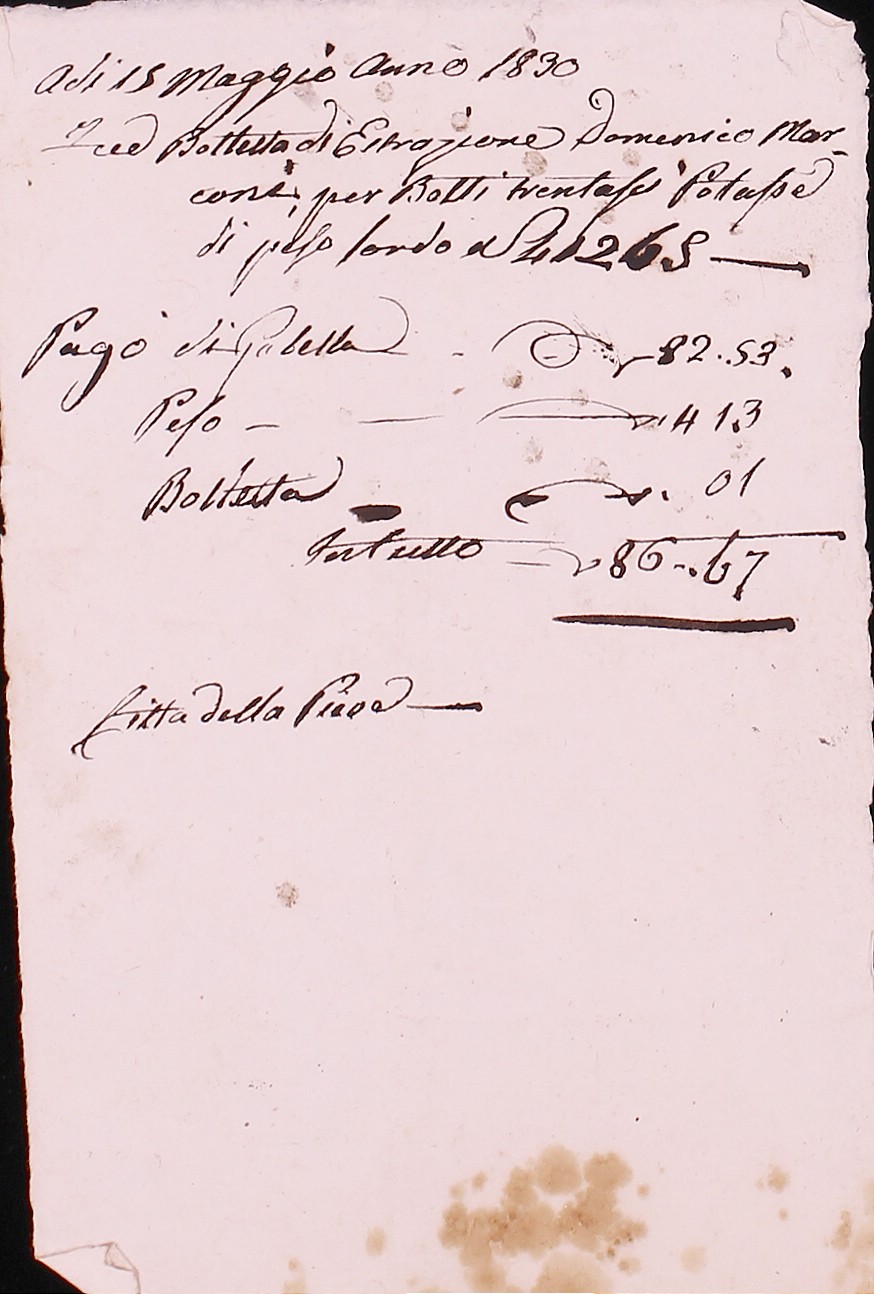 Adi 15 Maggio Anno 1830
Bolletta di Estrazione Domenico Mar-
coni, per Botti trentasei Potassa
di peso lordo 41265
Pagò di Gabella 82..53.
Peso — — 4 13
Bolletta 01
86-.67
Citta della Pieve —